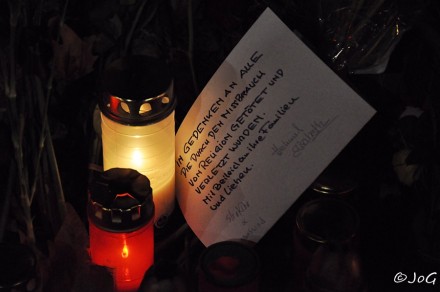 IN GEDENKEN AN ALLE
DIE DURCH DEN MISSBRAUCH
VON RELIGION GETÖTET UND
VERLETZT WURDEN.
Mit Beileid an ihre Familien
und Lieben.
©JoG